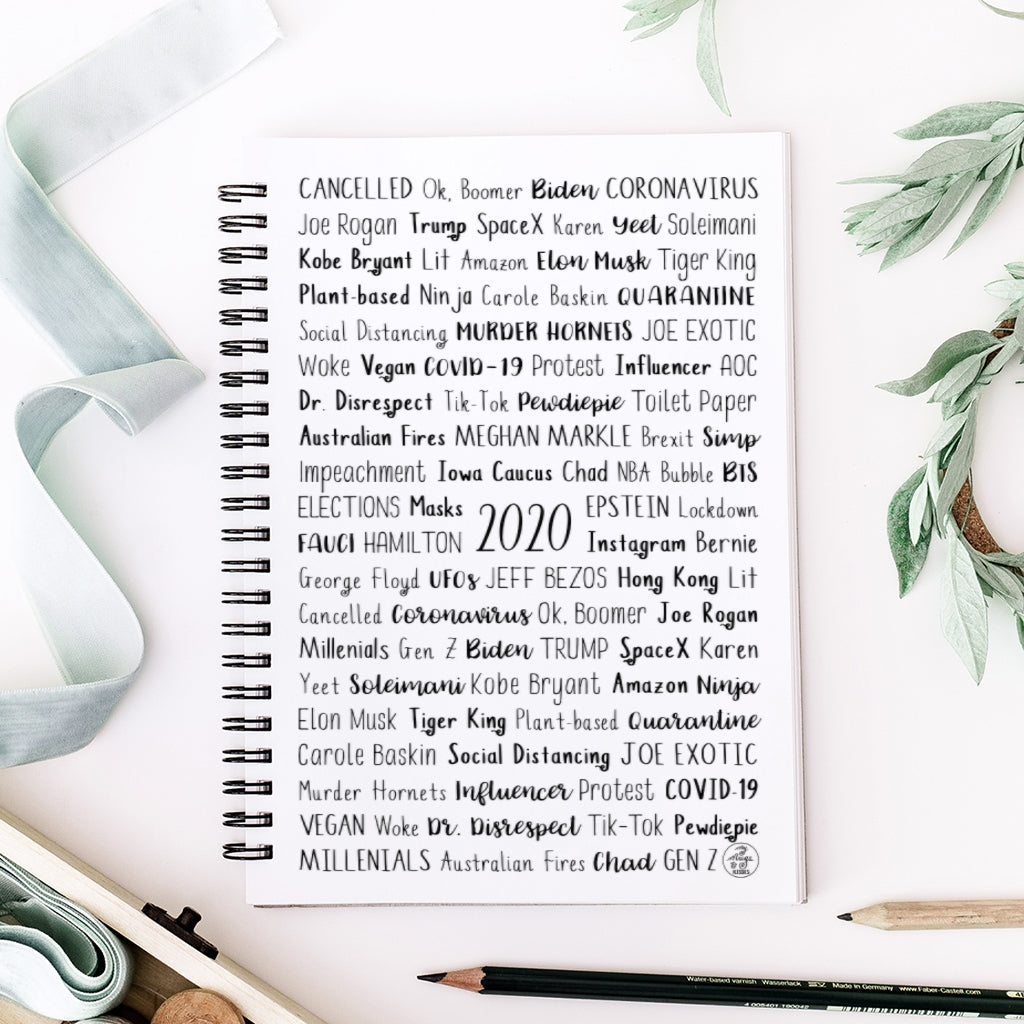 CANCELLED Ok, Boomer Biden CORONAVIRUS
Joe Rogan Trump SpaceX Karen Yeet Soleimani
Kobe Bryant Lit Amazon Elon Musk Tiger King
Plant-based Ninja Carole Baskin QUARANTINE
Social Distancing MURDER HORNETS JOE EXOTIC
Woke Vegan COVID-19 Protest Influencer AOC
Dr. Disrespect Tik-Tok Pewdiepie Toilet Paper
Australian Fires MEGHAN MARKLE Brexit Simp
Impeachment Iowa Caucus Chad NBA Bubble BTS
ELECTIONS Masks EPSTEIN Lockdown
2020
FAUCI HAMILTON Instagram Bernie
George Floyd UFOs JEFF BEZOS Hong Kong Lit
Cancelled Coronavirus Ok, Boomer Joe Rogan
Millenials Gen Z Biden TRUMP SpaceX Karen
Yeet Soleimani Kobe Bryant Amazon Ninja
Elon Musk Tiger King Plant-based Quarantine
Carole Baskin Social Distancing JOE EXOTIC
Murder Hornets Influencer Protest COVID-19
VEGAN Woke Dr. Disrespect Tik-Tok Pewdiepie
MILLENIALS Australian Fires Chad GEN Z
Water-based varnish Wasserlack Made in Germany www.Faber-Castell.com